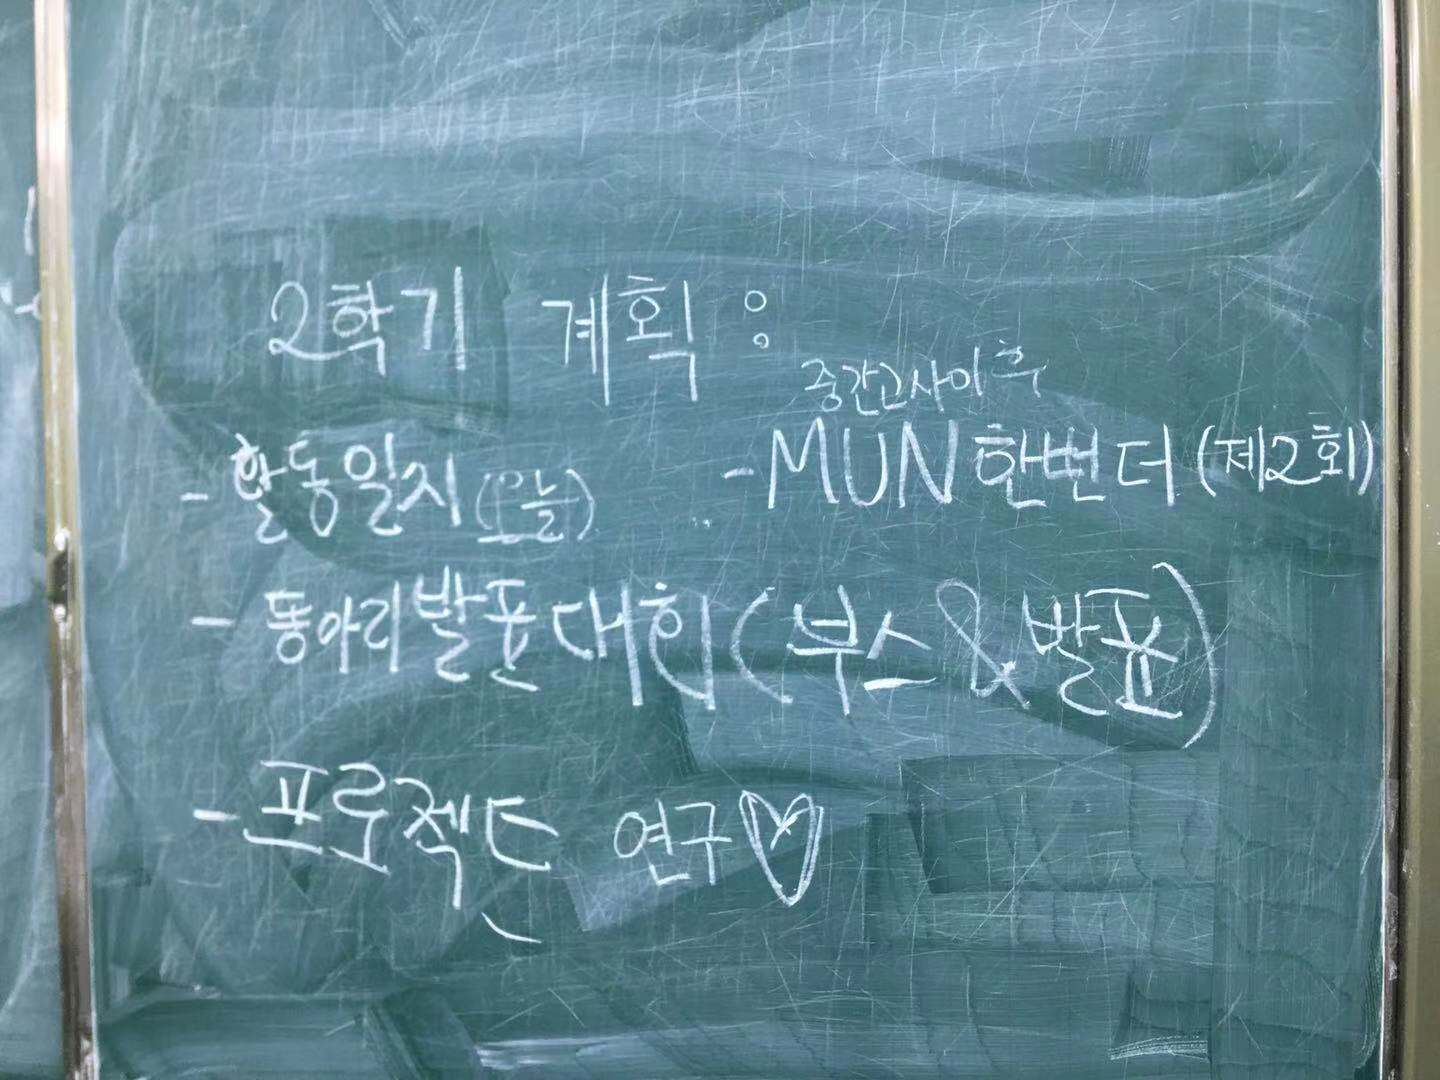 2학기 계획 :
- 활동일지 (오늘)
중간고사이후
- MUN 한번 더 (제2회)
- 동아리발표대회 (부스 & 발표)
- 프로젝트 연구♡